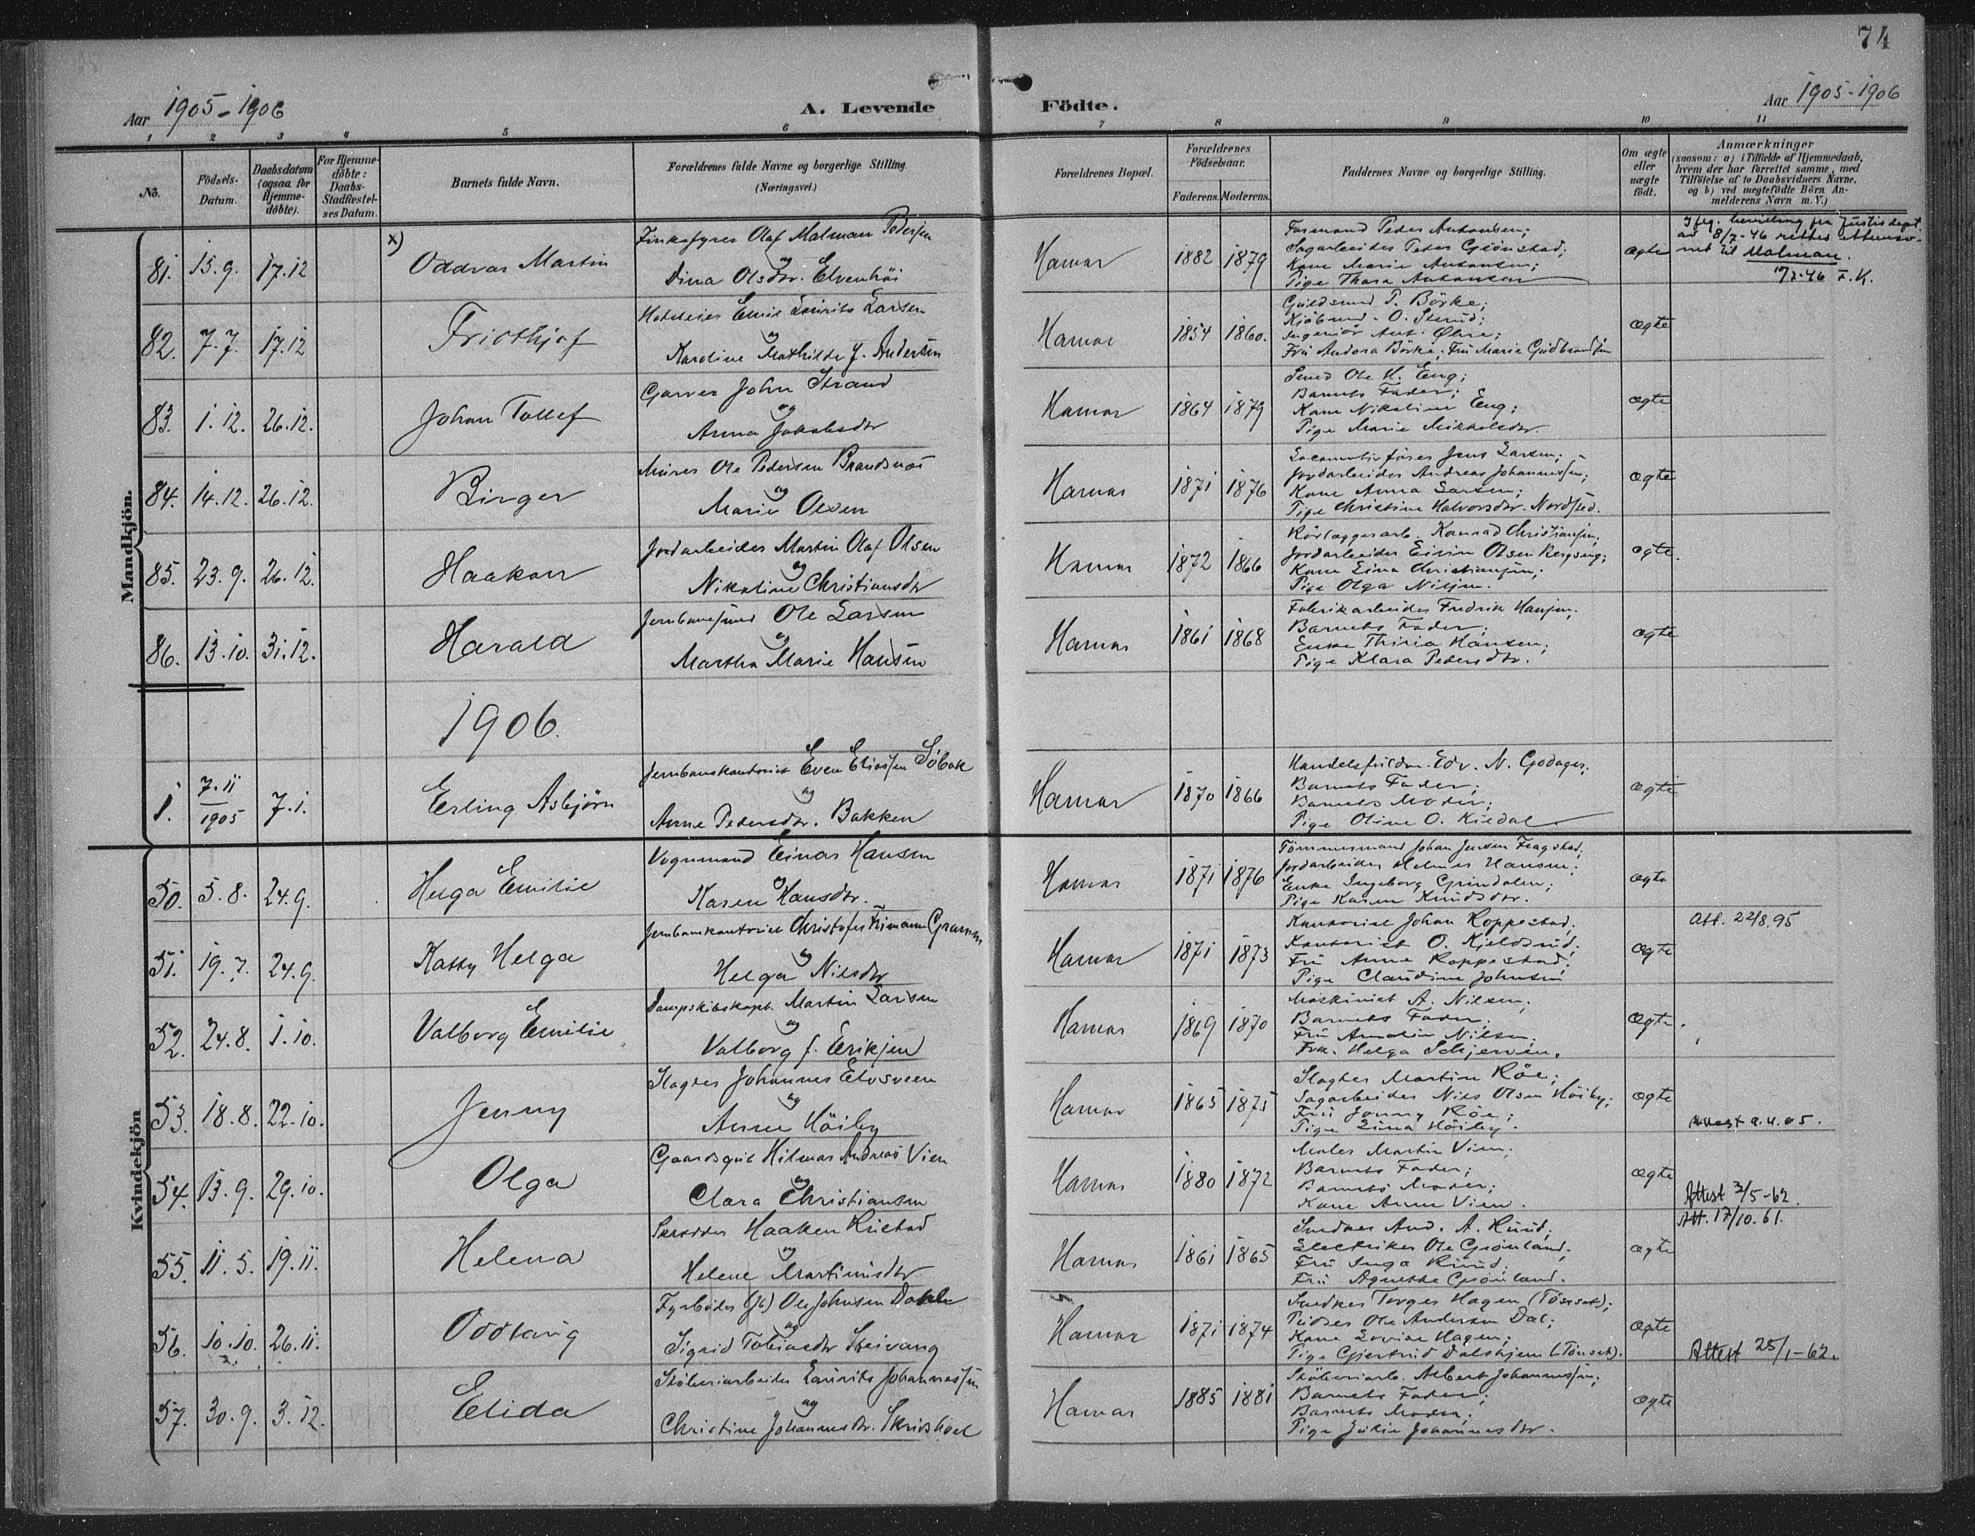 74
Aar 1905-1906
A. Levende
Födte.
Aar 1905-1906
1 2 3 4 5 6 7 8 9 10 11
No.
Födsels-
Datum.
Daabsdatum
(ogsaa for
Hjemme-
döbte).
For Hjemme-
döbte:
Daabs-
Stadfæstel-
ses Datum.
Barnets fulde Navn.
Forældrenes fulde Navne og borgerlige Stilling.
(Næringsvei.)
Forældrenes Bopæl.
Forældrenes
Födselsaar.
Faderens. Moderens.
Faddernes Navne og borgerlige Stilling.
Om ægte
eller
uægte
födt.
Anmærkninger
(saasom: a) i Tilfælde af Hjemmedaab,
hvem der har forrettet samme, med
Tilföielse af to Daabsvidners Navne,
og b) ved uægtefödte Börn An-
melderens Navn m. V.)
Mandkjön.
81. 15.9. 17.12
x)
Oddvar Martin
Olaf Malman Pedersen
og
Dina Olsdtr. Elvenhöi
Hamar
1882 1879
Formand Peder Antonsen;
Sagarbeider Peder Grönstad;
Kone Marie Antonsen;
Pige Thora Antonsen
ægte
Ifg. bevilling fra Justisdept.
av 8/7-46 rettes etternav-
net til Malman.
F.K.
82. 7.7. 17.12
Fridthjof
Emil Laurits Larsen
og
Karoline Mathilde f. Andersen
Hamar
1854 1860.
Guldsmed P. Börke;
Kjöbmd. O. Strud;
Ingeniör Ant. Öhre;
Frü Andora Börke; Frü Marie Gudbrandsen
ægte
83. 1.12. 26.12.
Johan Tollef
Garver John Strand
og
Anna Jakobsdtr
Hamar
1864 1879
Smed Ole H. Eng;
Barnets Fader;
Kone Nikoline Eng;
Pige Marie Mikkelsdtr.
ægte
84. 14.12. 26.12.
Birger
Murer Ole Pedersen Brandsnæs
og
Marie Olsen
Hamar
1871 1876
Locomotivförer Jens Larsen;
Jordarbeider Andreas Johannesen;
Kone Anna Larsen;
Pige Christine Halvorsdtr. Nordsted.
ægte
85. 23.9. 26.12.
Haakon
Jordarbeider Martin Olaf Olsen
og
Nikoline Christiansdtr
Hamar
1872 1866
Rörlæggerarb. Konrad Christiansen;
Jordarbeider Eivin Olsen Bergseng;
Kone Lina Christiansen;
Pige Olga Nilsen.
ægte.
86. 13.10. 31.12.
Harald
Jernbanesmed Ole Larsen
og
Martha Marie Hansen
Hamar
1861 1868
Fabrikarbeider Fredrik Hansen;
Barnets Fader;
Enke Thiria Hansen;
Pige Klara Pedersdtr.
ægte
1906.
1. 7.11
1905
7.1.
Erling Asbjörn
Jernbanekontorist Even Eliassen Söbak
og
Anne Pedersdtr. Bakken
Hamar
1870 1866
Edv. N. Godager;
Barnets Fader;
Barnets Moder;
Pige Oline O. Kildal
ægte
Kvindekjön
50. 5.8. 24.9.
Helga Emilie
Vognmand Einar Hansen
og
Karen Hansdtr.
Hamar
1871 1876
Tömmermand Johan Jensen Fragstad;
Jordarbeider Helmer Hansen;
Enke Ingeborg Grindalen;
Pige Karen Knudsdtr.
ægte
51. 19.7. 24.9.
Kathy Helga
Jernbanekontorist Christofer Frimann Gramm
og
Helga Nilsdtr
Hamar
1871 1873
Kontorist Johan Koppestad;
Kontorist O. Kjeldsrud;
Frü Anna Koppestad;
Pige Claudine Johnsen
ægte
Att. 22/8.95
52. 24.8. 1.10.
Valborg Emilie
Dampskibskapt. Martin Larsen
og
Valborg f. Eriksen
Hamar
1869 1870
Maskinist A. Nilsen;
Barnets Fader;
Frü Amalie Nilsen;
Frk. Helga Schjerven.
ægte.
53. 18.8. 22.10.
Jenny
Slagter Johannes Elvsveen
og
Anne Höiby
Hamar
1865 1875
Slagter Martin Röe;
Sagarbeider Nils Olsen Höiby;
Frü Jenny Röe;
Pige Lina Höiby.
ægte
Attest 9.4.65.
54. 13.9. 29.10.
Olga
Gaardsgut Hilmar Andreas Vien
og
Clara Christiansen
Hamar
1880 1872
Maler Martin Vien;
Barnets Fader;
Barnets Moder;
Kone Anne Vien.
ægte
Attest 3/5-62.
55. 11.5. 19.11.
Helena
Skrædder Haaken Rustad
og
Helene Martinusdtr
Hamar
1861 1865
Snedker And. A. Ruud;
Electriker Ole Grönland;
Frü Inga Ruud;
Frü Agnethe Grönland.
ægte
Att. 17/10.61.
56. 10.10. 26.11.
Oddlaug
Fyrböder (Jb) Ole Johnsen Dahle
og
Sigrid Tobiasdtr Skeivang
Hamar
1871 1874
Snedker Torger Hagen (Tönset);
Pudser Ole Andersen Dal;
Kone Lovise Hagen;
Pige Gjertrud Dalshjem (Tönset).
ægte
Attest 25/1-62.
57. 30.9. 3.12.
Elida
Stöberiarbeider Laurits Johannessen
og
Christine Johannesdtr. Skridshoel
Hamar
1885 1881
Stöberiarb. Albert Johannessen;
Barnets Fader;
Barnets Moder;
Pige Julie Johannesdtr.
ægte